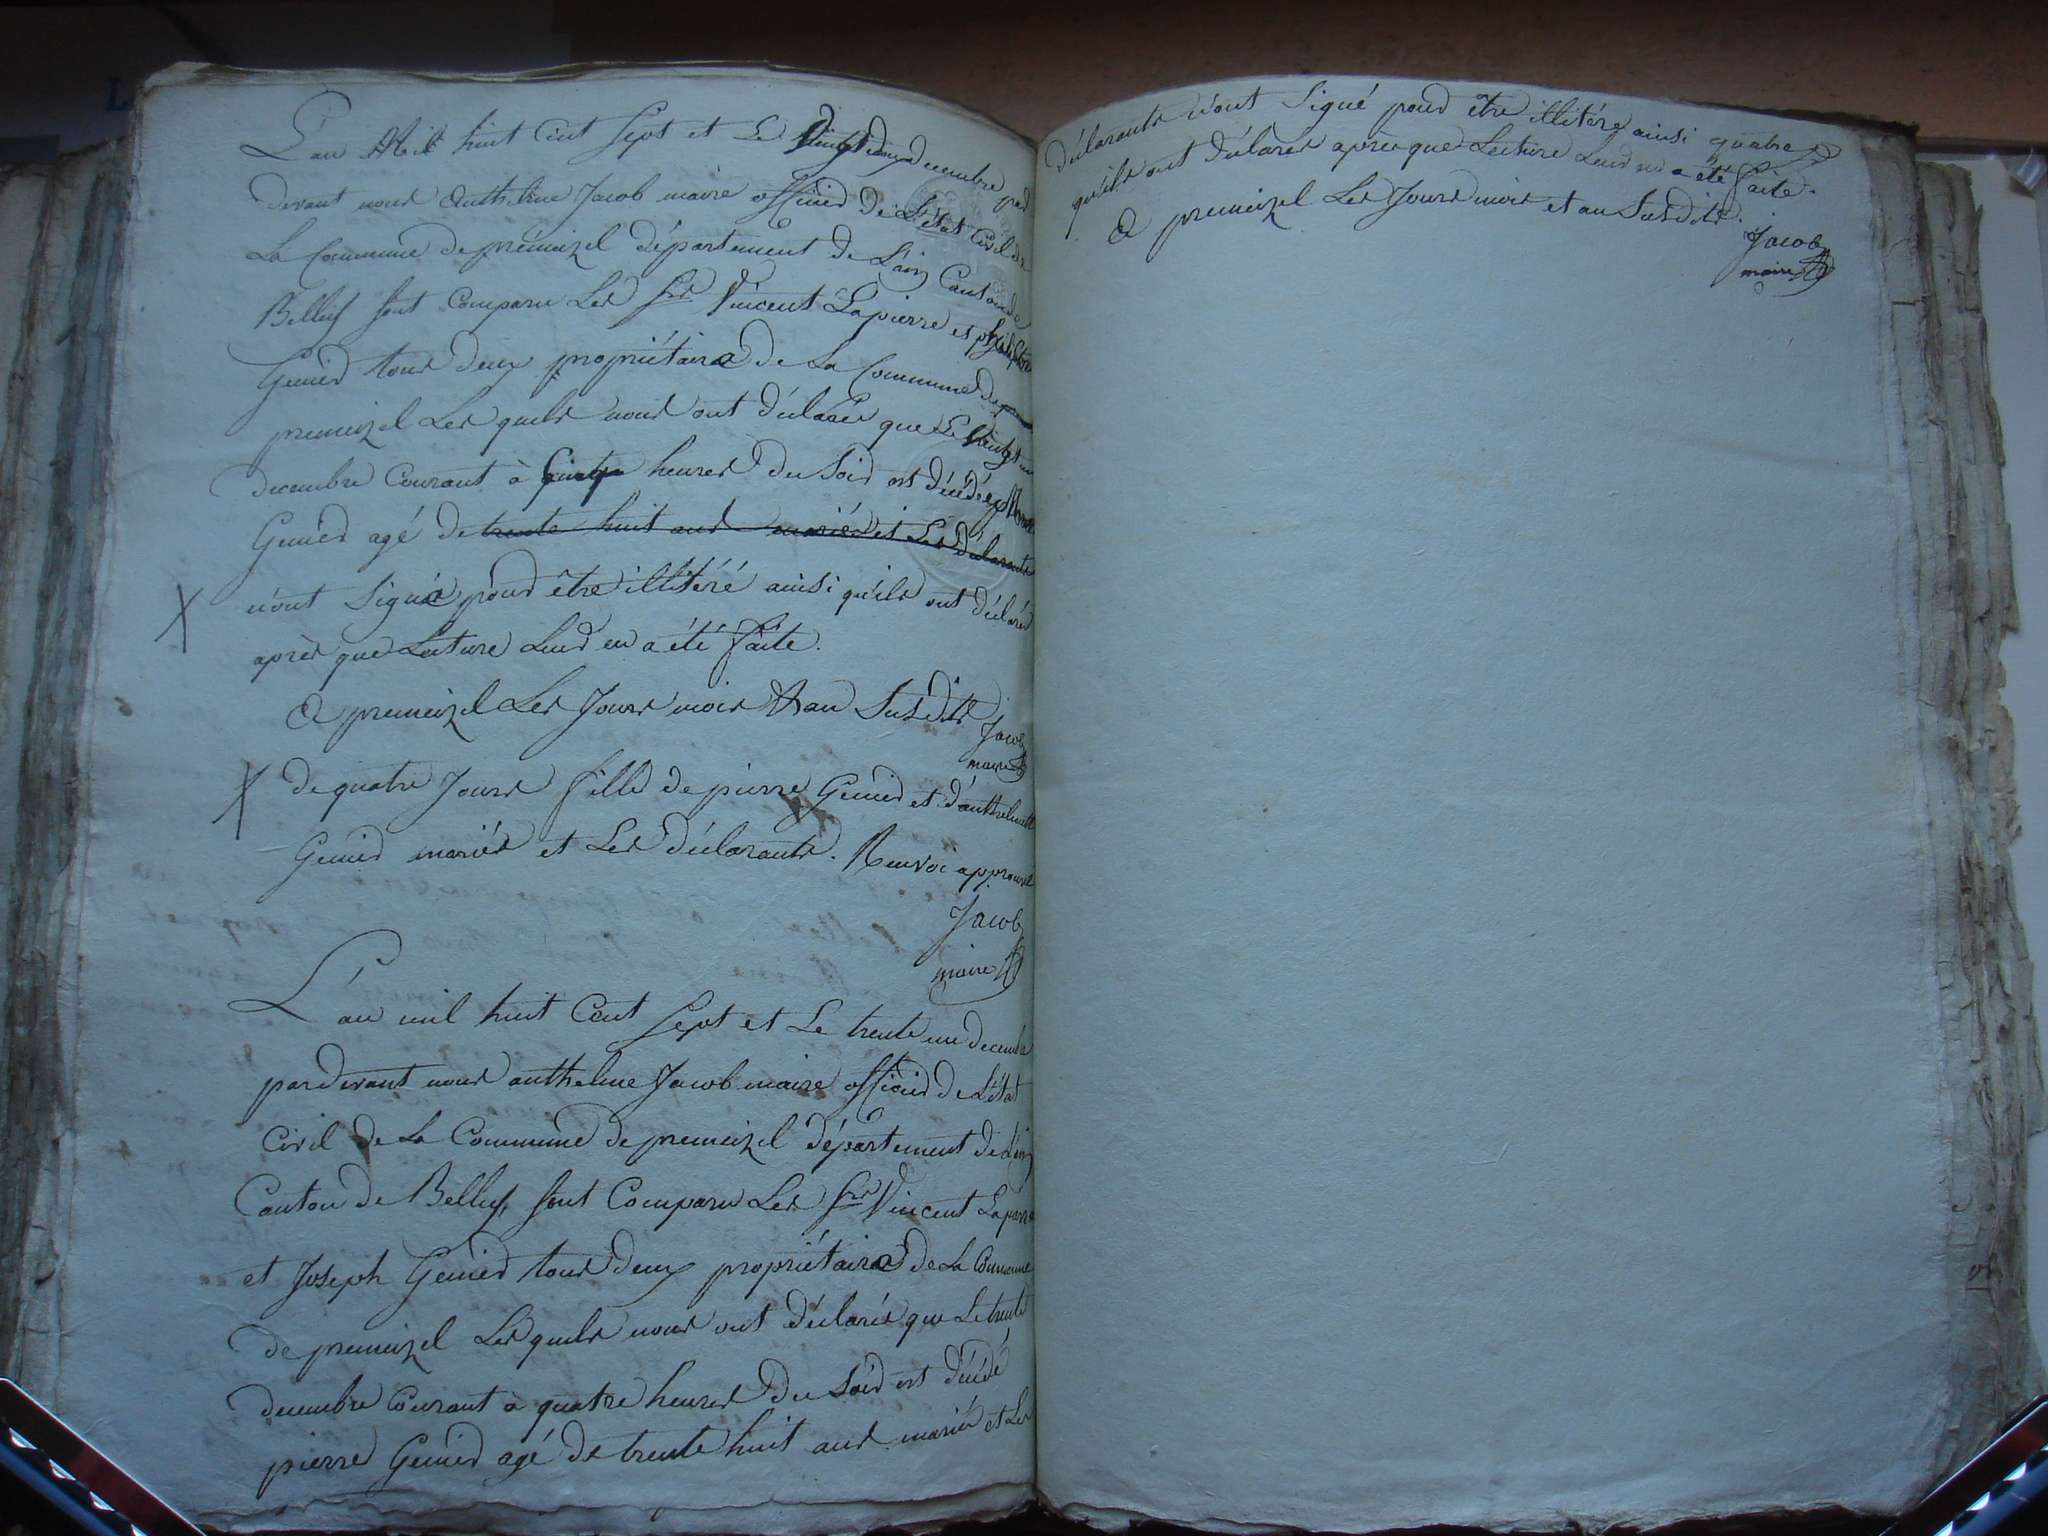 L'an Mil huit Cent Sept et Le Vingt deux decembre par
devant nous Anthelme Jacob maire officier de L'état Civil de
La Commune de premeizel département de L'ain Canton de
Belley Sont Comparu Les Srs Vincent Lapierre et
Genier tous deux propriétaires de La Commune de
premeizel Lesquels nous ont déclarés que Le Vingt un
decembre Courant à heures Du Soir est décédée
Genier agé de trente huit ans mariés et Les déclarants
n'ont Signés pour être illitéré ainsi qu'ils ont déclarés
après que Lecture Leur en a été faite.
A premeizel Les Jours mois et an Susdits
Jacob
maire
X de quatre Jours fille de pierre Genier et d'anthelmette
Genier mariés et Les déclarants. Renvoi approuvé
Jacob
maire
L'an mil huit Cent Sept et Le trente un decembre
pardevant nous anthelme Jacob maire officier de L'état
Civil de La Commune de premeizel département de L'ain
Canton de Belley, Sont Comparu Les Srs Vincent Lapierre
et Joseph Genier tous deux propriétaires de La Commune
de premeizel Lesquels nous ont déclarés que Le trente
decembre Courant à quatre heures Du Soir est décédé
pierre Genier agé de trente huit ans mariés et Les
déclarants n'ont Signé pour être illitérés ainsi
qu'ils ont déclarés après que Lecture Leur en a été faite.
A premeizel Les Jours mois et an Susdits.
Jacob
maire